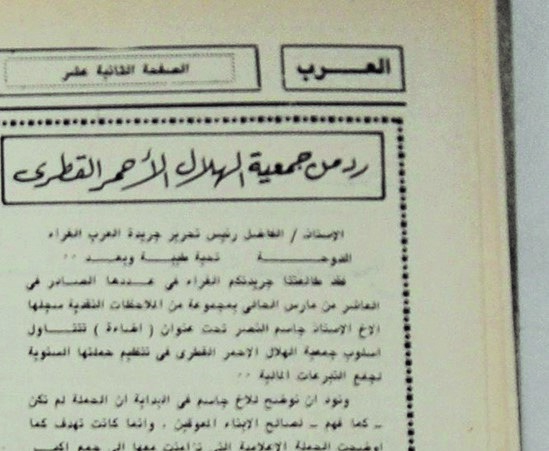 العـــــرب
الصفحة الثانية عشر
رد من جمعية الهلال الأحمر القطرى
الاستاذ / الفاضل رئيس تحرير جريدة العرب الغراء
الدوحـــــــة تحية طيبـــة وبعـــد ٠٠
فقد طالعتنا جريدتكم الغراء فى عـــددها الصـادر فى
العاشر من مارس الحالى بمجموعة من الملاحظات النقدية سجلها
الاخ الاستاذ جاسم النصر تحت عنوان ( اضاءة ) تتنـــاول
اسلوب جمعية الهلال الاحمر القطرى فى تنظيم حملتها السنوية
لجمع التبرعات المالية ٠٠
ونود ان نوضح للاخ جاسم فى البداية ان الحملة لم تكن
ـ كما فهم ـ لصالح الابناء المعوقين ، وانما كانت تهدف كما
اوضحت الحملة الاعلامية التى تزامنت معها الى جمع اكبـر